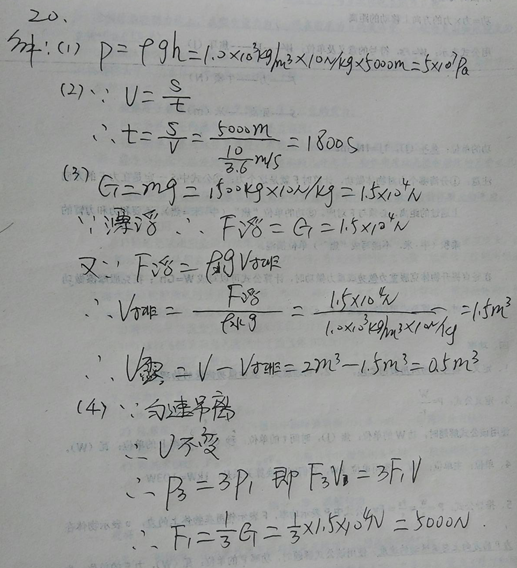 20.
解:(1) P=ρgh=1.0×10³kg/m³×10N/kg×5000m=5×10⁷Pa
(2)∵ V=s/t
∴ t=s/v=5000m/(10/3.6 m/s)=1800s
(3) G=mg=1500kg×10N/kg=1.5×10⁴N
∵漂浮 ∴ F浮=G=1.5×10⁴N
又∵ F浮=ρ水gV排
∴ V排=F浮/ρ水g=1.5×10⁴N/1.0×10³kg/m³×10N/kg=1.5m³
∴ V露=V-V排=2m³-1.5m³=0.5m³
(4) ∵匀速吊离
∴ V不变
∴ P₃=3P₁ 即 F₃V₃=3F₁V
∴ F₁=1/3G=1/3×1.5×10⁴N=5000N.